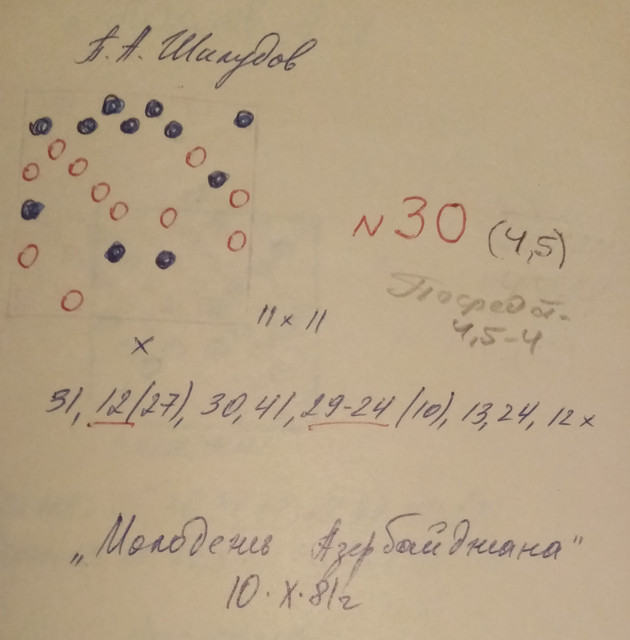 П. А. Шклудов
N 30 (4,5)
Посредст.
4,5-4
11 x 11
x
31, 12(27), 30, 41, 29-24 (10), 13, 24, 12x
„Молодежь Азербайджана"
10. X. 81г